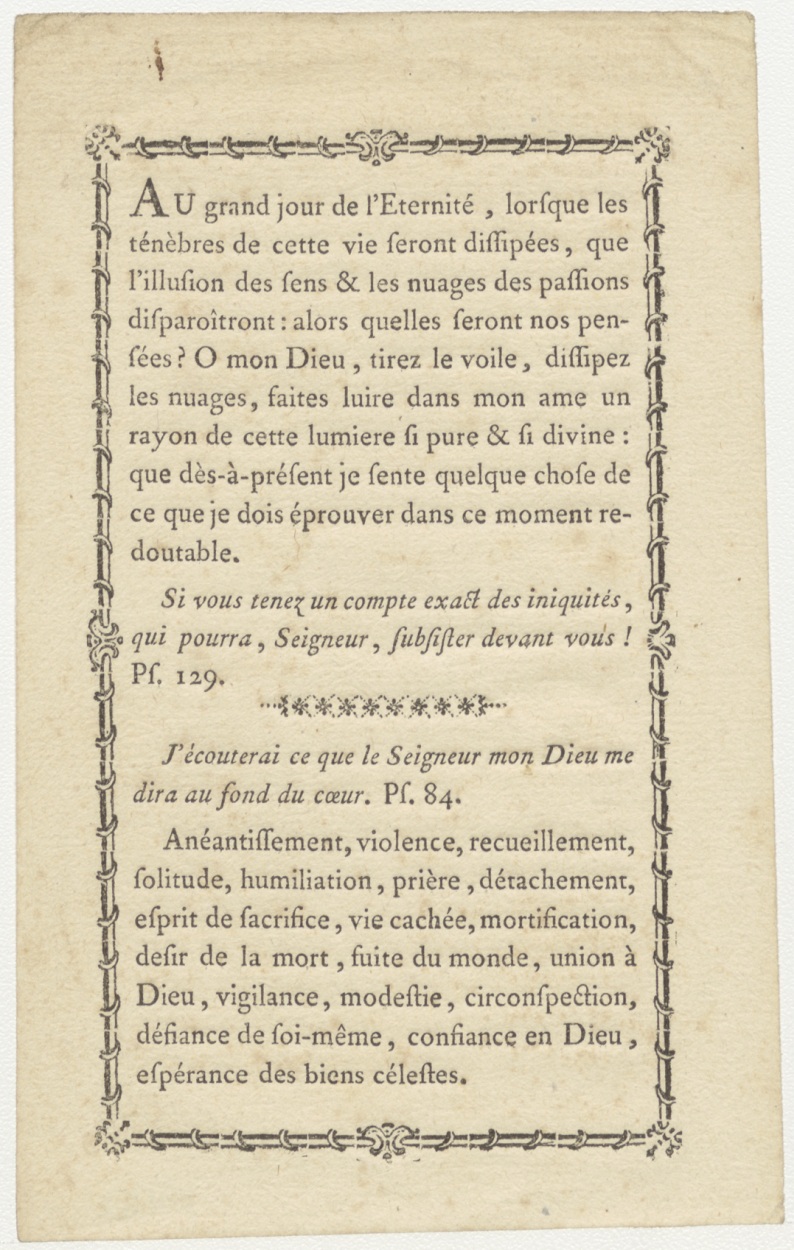 AU grand jour de l'Eternité , lorſque les
ténèbres de cette vie ſeront diſſipées, que
l'illuſion des ſens & les nuages des paſſions
diſparoîtront : alors quelles ſeront nos pen-
ſées ? O mon Dieu , tirez le voile, diſſipez
les nuages, faites luire dans mon ame un
rayon de cette lumiere ſi pure & ſi divine :
que dès-à-préſent je ſente quelque choſe de
ce que je dois éprouver dans ce moment re-
doutable.
Si vous tenez un compte exact des iniquités,
qui pourra, Seigneur, ſubſiſter devant vous !
Pſ. 129.
J'écouterai ce que le Seigneur mon Dieu me
dira au fond du cœur. Pſ. 84.
Anéantiſſement, violence, recueillement,
ſolitude, humiliation, prière, détachement,
eſprit de ſacrifice, vie cachée, mortification,
deſir de la mort, fuite du monde, union à
Dieu, vigilance, modeſtie, circonſpection,
défiance de ſoi-même, confiance en Dieu,
eſpérance des biens céleſtes.